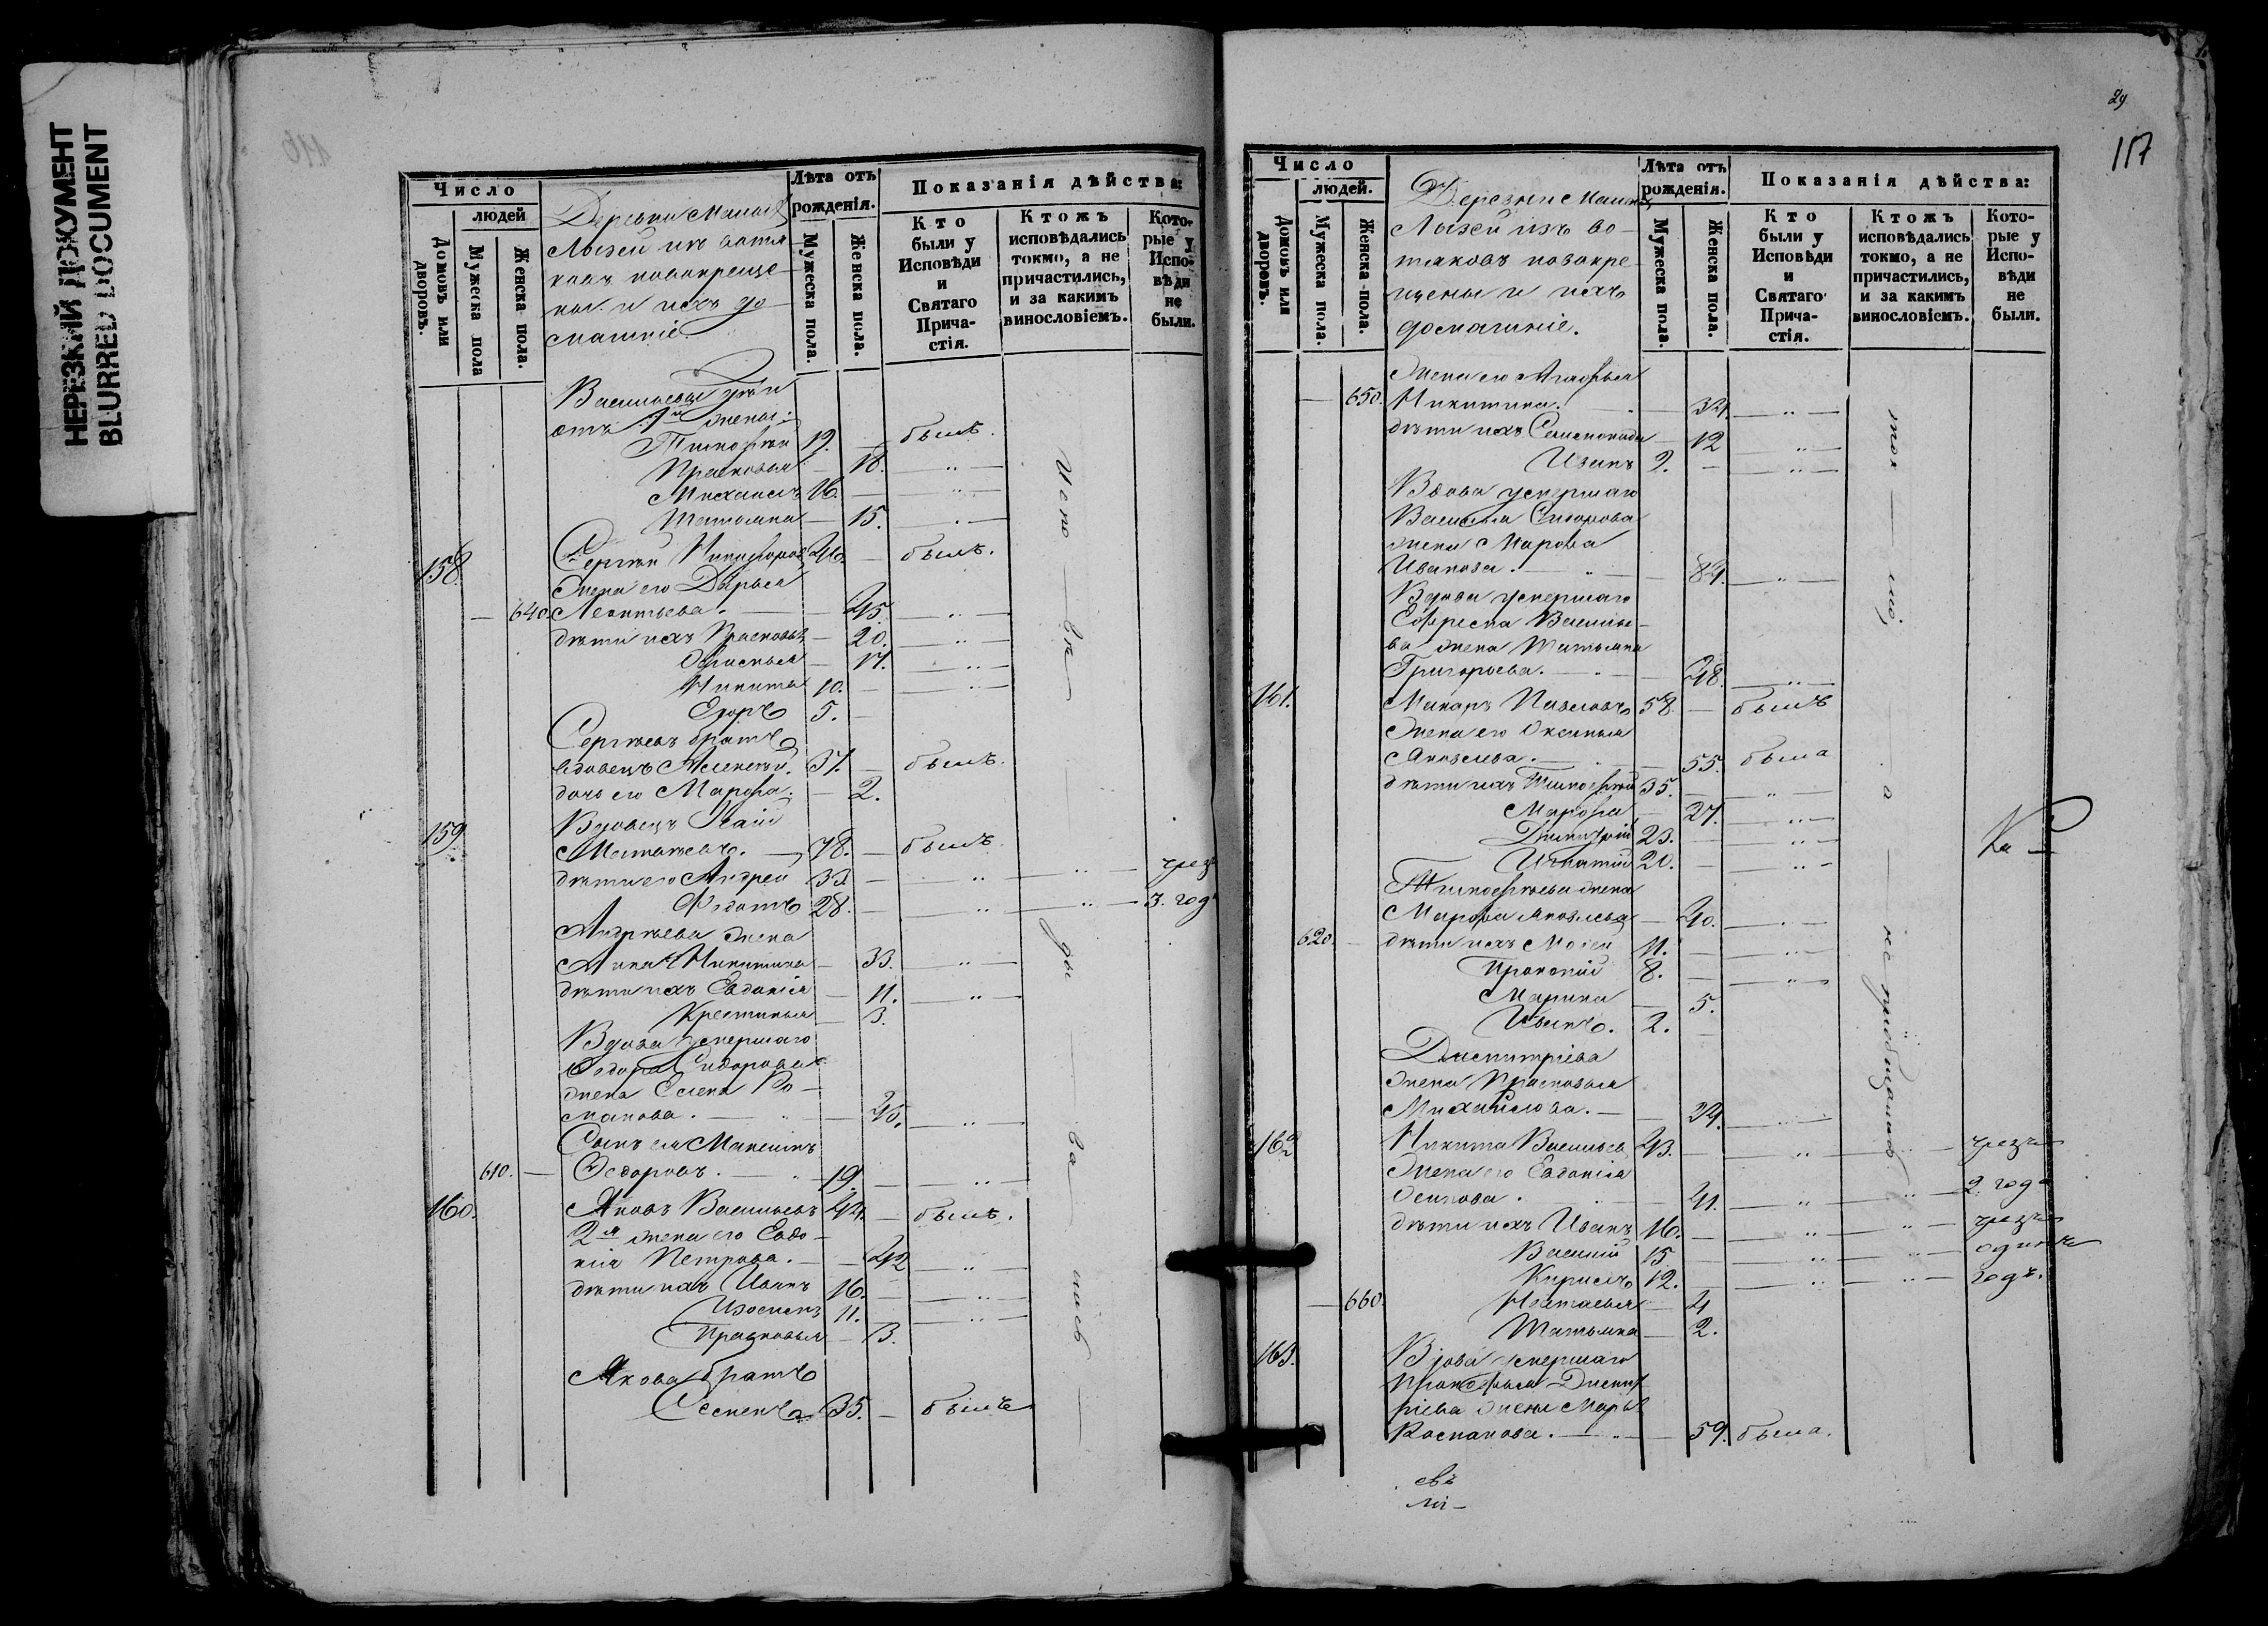 НЕРЕЗКИЙ ДОКУМЕНТ
BLURRED DOCUMENT
116
Число
людей
Домовъ или дворовъ.
Мужеска пола
Женска пола.
Деревни Малыя
Лызей изъ вотя-
ковъ новокреще-
ные и ихъ до-
машніе.
Лѣта отъ рожденія.
Мужеска пола.
Женска пола.
Показанія дѣйства:
Кто были у Исповѣди и Святаго Причастія.
Ктожъ исповѣдались токмо, а не причастились, и за какимъ винословіемъ.
Которые у Исповѣди не были.
Васильевы дѣти
отъ 1й жены:
Тимофѣй 19. — былъ.
Прасковья — 18. — " —
Михаилъ 16. — — " —
Татьяна — 15. — " —
158. Сергѣй Никифоровъ 46. — былъ.
Жена его Дарья
— 640. Леонтьева. — 45. — " —
дѣти ихъ Прасковья — 20. — " —
Офимья — 17. — " —
Никита 10. — — " —
Егоръ 5. —
Сергѣевъ братъ
вдовецъ Алексѣй. 37. — былъ.
дочь его Марфа. — 2.
159. Вдовецъ
Матвѣевъ. — 78. — былъ.
дѣти его Андрей 33. — " — " — чрезъ
Федотъ 28. — " — " — 3. года
Андрѣева жена
Анна Никитина — 33. — " —
дѣти ихъ Евдокія — 11. — " —
Крестинья — 3.
Вдова умершаго
Федора Сидорова
жена Елена Ро-
манова. — " — 45. — " —
Сынъ ея Максимъ
610. — Федоровъ. — " 19. — — " —
160. Яковъ Васильевъ 44. — былъ.
2я жена его Евдо-
кія Петрова. — — 42 — " —
дѣти ихъ Иванъ 16. — — " —
11. — — " —
Прасковья — 3.
Якова братъ
Семенъ 35. — былъ
Исповѣ — ды — ва — лись —
29
117
Число
людей.
Домовъ или дворовъ.
Мужеска пола.
Женска пола.
Деревни Малыя
Лызей изъ во-
тяковъ новокре-
щены и ихъ
домашніе.
Лѣта отъ рожденія.
Мужеска пола.
Женска пола.
Показанія дѣйства:
Кто были у Исповѣди и Святаго Причастія.
Ктожъ исповѣдались токмо, а не причастились, и за какимъ винословіемъ.
Которые у Исповѣди не были.
Жена его Агафья
— 650. Никитина. — 34. — " —
дѣти ихъ — 12 — " —
Иванъ 2. — — " —
Вдова умершаго
Василья Сидорова
жена Марфа
Иванова. — " — 84. — " —
Вдова умершаго
Ефрема Василье-
ва жена Татьяна
Григорьева. — " — 48. — " —
161. Макаръ Павловъ 58. — былъ
Жена его Оксинья
Яковлева. — " — 55. была
дѣти ихъ Тимофѣй 35. — " —
Марфа 27. — " —
Димитрій 23. — " —
Игнатій 20. — " —
Тимофѣева жена
Марфа Яковлева — 40. — " —
620. — дѣти ихъ Мосей 11. — — " —
Прокопій 8. — — " —
Марина — 5.
Иванъ. 2. —
Димитріева
жена Прасковья
Михайлова. — — 24. — " —
162 Никита Васильевъ 43. — " — " — чрезъ
Жена его Евдокія
Осипова. — " — 41. — " — " — 2. года
дѣти ихъ Иванъ 16. — " — " — чрезъ
Василій 15 — " — " — одинъ
Кирилъ 12. — " — " — годъ.
— 660. Наталья — 4
Татьяна — 2.
163. Вдова умершаго
Прокофья Димит-
ріева жена Марья
Романова. — " — 59. была.
ток — мо, — а — не прибщались